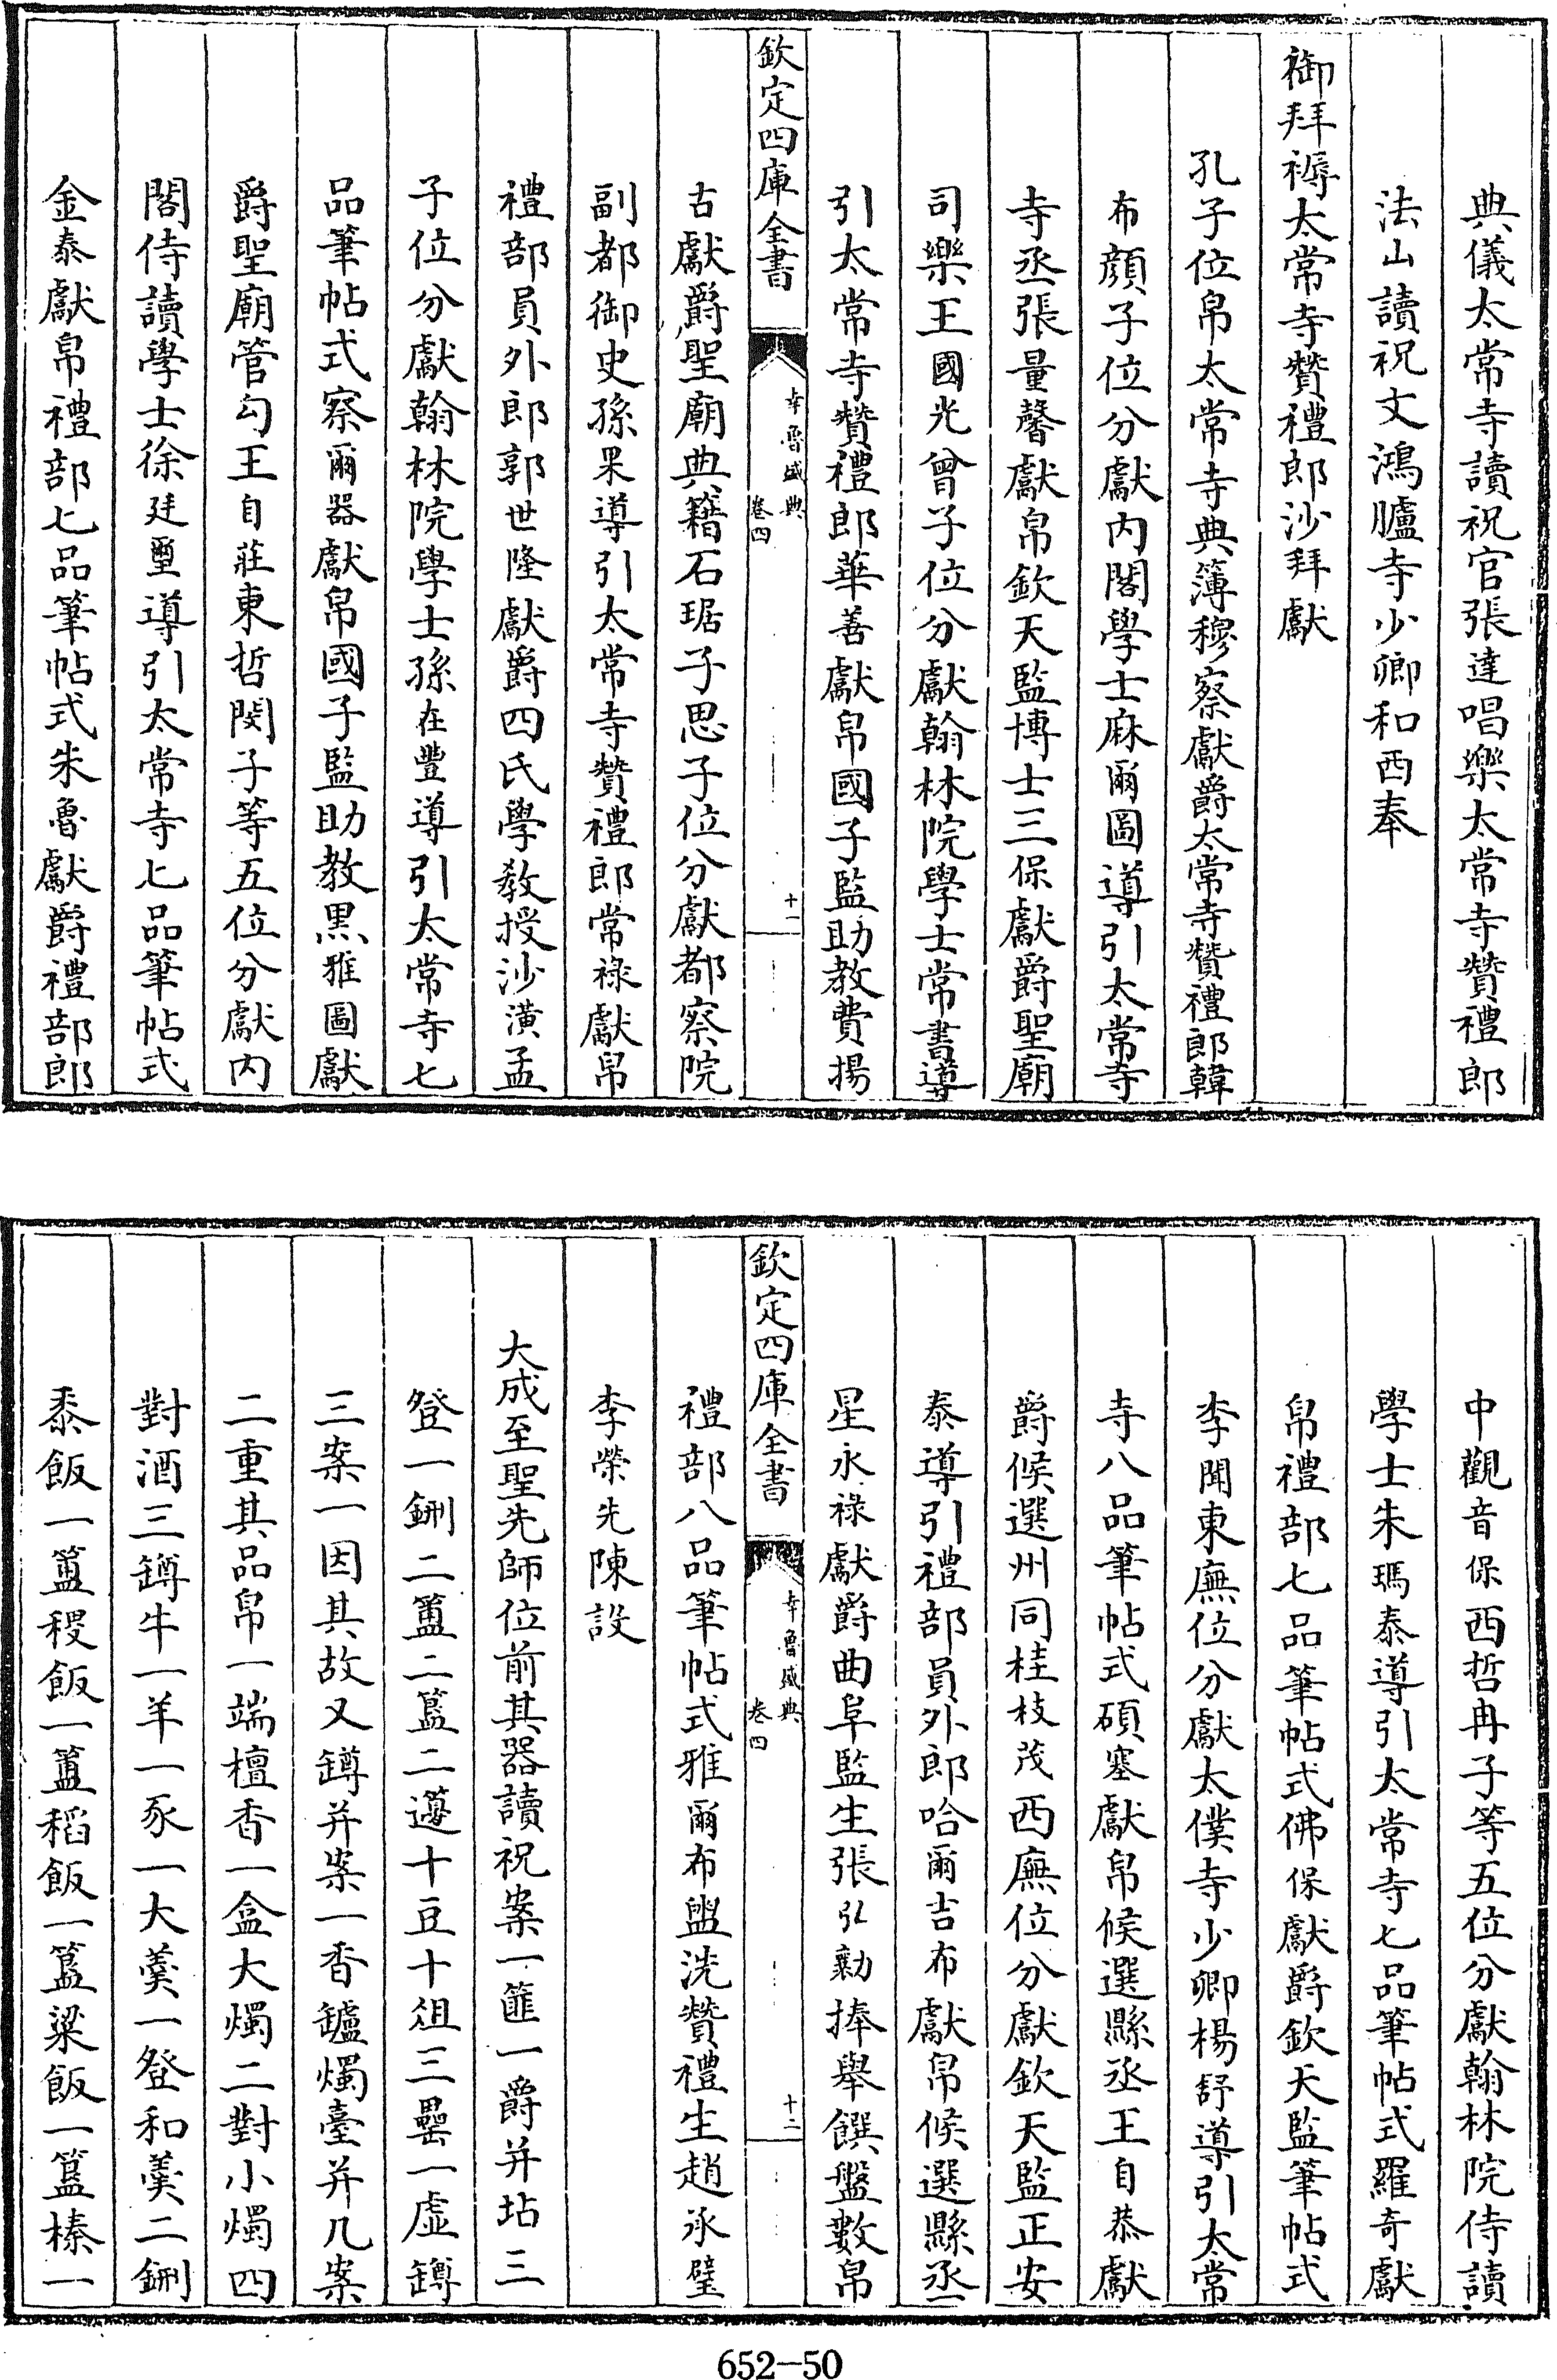 典儀太常寺讀祝官張達唱樂太常寺贊禮郎
法山讀祝文鴻臚寺少卿和西奉
御拜褥太常寺贊禮郎沙拜獻
孔子位帛太常寺典簿穆察獻爵太常寺贊禮郎韓
布顔子位分獻内閣學士麻爾圖導引太常寺
寺丞張量馨獻帛欽天監博士三保獻爵聖廟
司樂王國光曾子位分獻翰林院學士常書導
引太常寺贊禮郎華善獻帛國子監助教費揚
欽定四庫全書
幸魯盛典
卷四
十一
古獻爵聖廟典籍石琚子思子位分獻都察院
副都御史孫果導引太常寺贊禮郎常祿獻帛
禮部員外郎郭世隆獻爵四氏學教授沙澒孟
子位分獻翰林院學士孫在豐導引太常寺七
品筆帖式察爾器獻帛國子監助教黒雅圖獻
爵聖廟管勾王自莊東哲閔子等五位分獻内
閣侍讀學士徐廷璽導引太常寺七品筆帖式
金泰獻帛禮部七品筆帖式朱魯獻爵禮部郎
中觀音保西哲冉子等五位分獻翰林院侍讀
學士朱瑪泰導引太常寺七品筆帖式羅奇獻
帛禮部七品筆帖式佛保獻爵欽天監筆帖式
李聞東廡位分獻太僕寺少卿楊舒導引太常
寺八品筆帖式碩塞獻帛候選縣丞王自恭獻
爵候選州同桂枝茂西廡位分獻欽天監正安
泰導引禮部員外郎哈爾吉布獻帛候選縣丞
星永祿獻爵曲阜監生張弘勷捧舉饌盤數帛
欽定四庫全書
幸魯盛典
卷四
十二
禮部八品筆帖式雅爾布盥洗贊禮生趙永璧
李榮先陳設
大成至聖先師位前其器讀祝案一篚一爵并坫三
登一鉶二簠二簋二籩十豆十俎三罍一虚罇
三案一因其故又罇并案一香鑪燭臺并几案
二重其品帛一端檀香一盒大燭二對小燭四
對酒三罇牛一羊一豕一大羮一登和羮二鉶
黍飯一簠稷飯一簠稻飯一簋粱飯一簋榛一
652-50